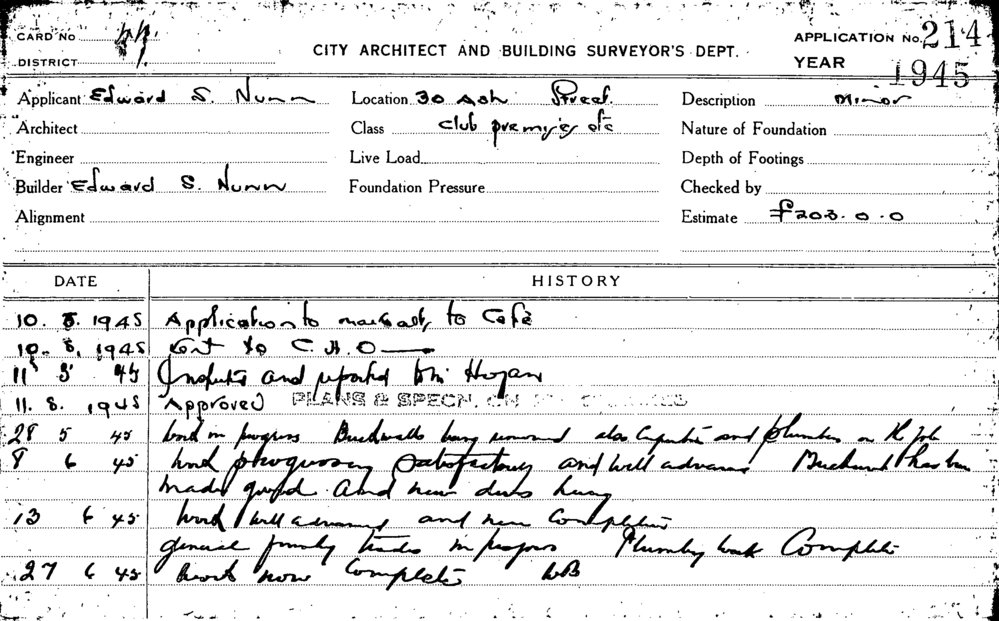 CARD No
DISTRICT
CITY ARCHITECT AND BUILDING SURVEYOR'S DEPT.
APPLICATION No. 214
YEAR 1945
Applicant Edward S. Nunn
Location 30 Ash Street.
Description Minor
Architect
Class Club premises etc
Nature of Foundation
Engineer
Live Load
Depth of Footings
Builder Edward S. Nunn
Foundation Pressure
Checked by
Alignment
Estimate £203.0.0
DATE HISTORY
10. 5. 1945 Application to to Café
10. 5. 1945 to C.H.O
11 5 45 Inspected and reported Hogan
11. 5. 1945 Approved PLANS & SPECN. ON
28 5 45 Work in progress Brickwalls being removed also and plumber on the job
8 6 45 Work progressing satisfactory and well advanced Brickwork has been
made good and new doors hung
13 6 45 Work well advanced and near completion
general trades in progress Plumbing work Complete
27 6 45 Work now Complete WB